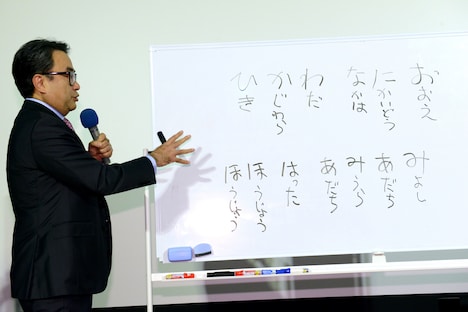 おおえ
にかいどう
わだ
かじわら
ひき
みよし
あだち
みうら
あだち
はった
ほうじょう
ほうじょう